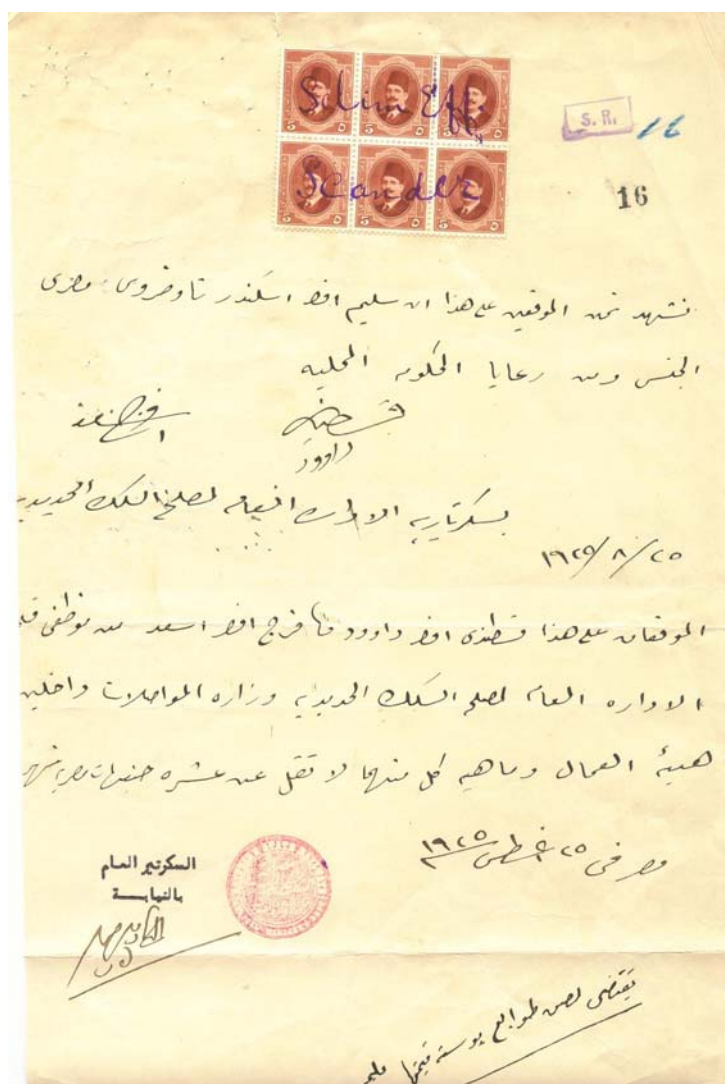 Selim Eff.
Scander
5 ٥ 5 ٥ 5 ٥
5 ٥ 5 ٥ 5 ٥
S. R. 16
16
نشهد نحن الموقعين على هذا ان سليم افندى اسكندر تاوضروس مصرى
الجنس ومن رعايا الحكومه المحليه
داوود
بسكرتاريه الاداره العامه لمصلحة السكك الحديديه
٢٥/٨/١٩٢٥
الموقعان على هذا قسطندى افندى داوود و فرج افندى اسعد من موظفى
الاداره العامه لمصلحة السكك الحديديه وزاره المواصلات داخلين
هيئة العمال وماهيه كل منهما لا تقل عن عشره جنيهات
مصر فى ٢٥ اغسطس ١٩٢٥
السكرتير العام
بالنيابة
يقتضى لصق طوابع بوسته قيمتها